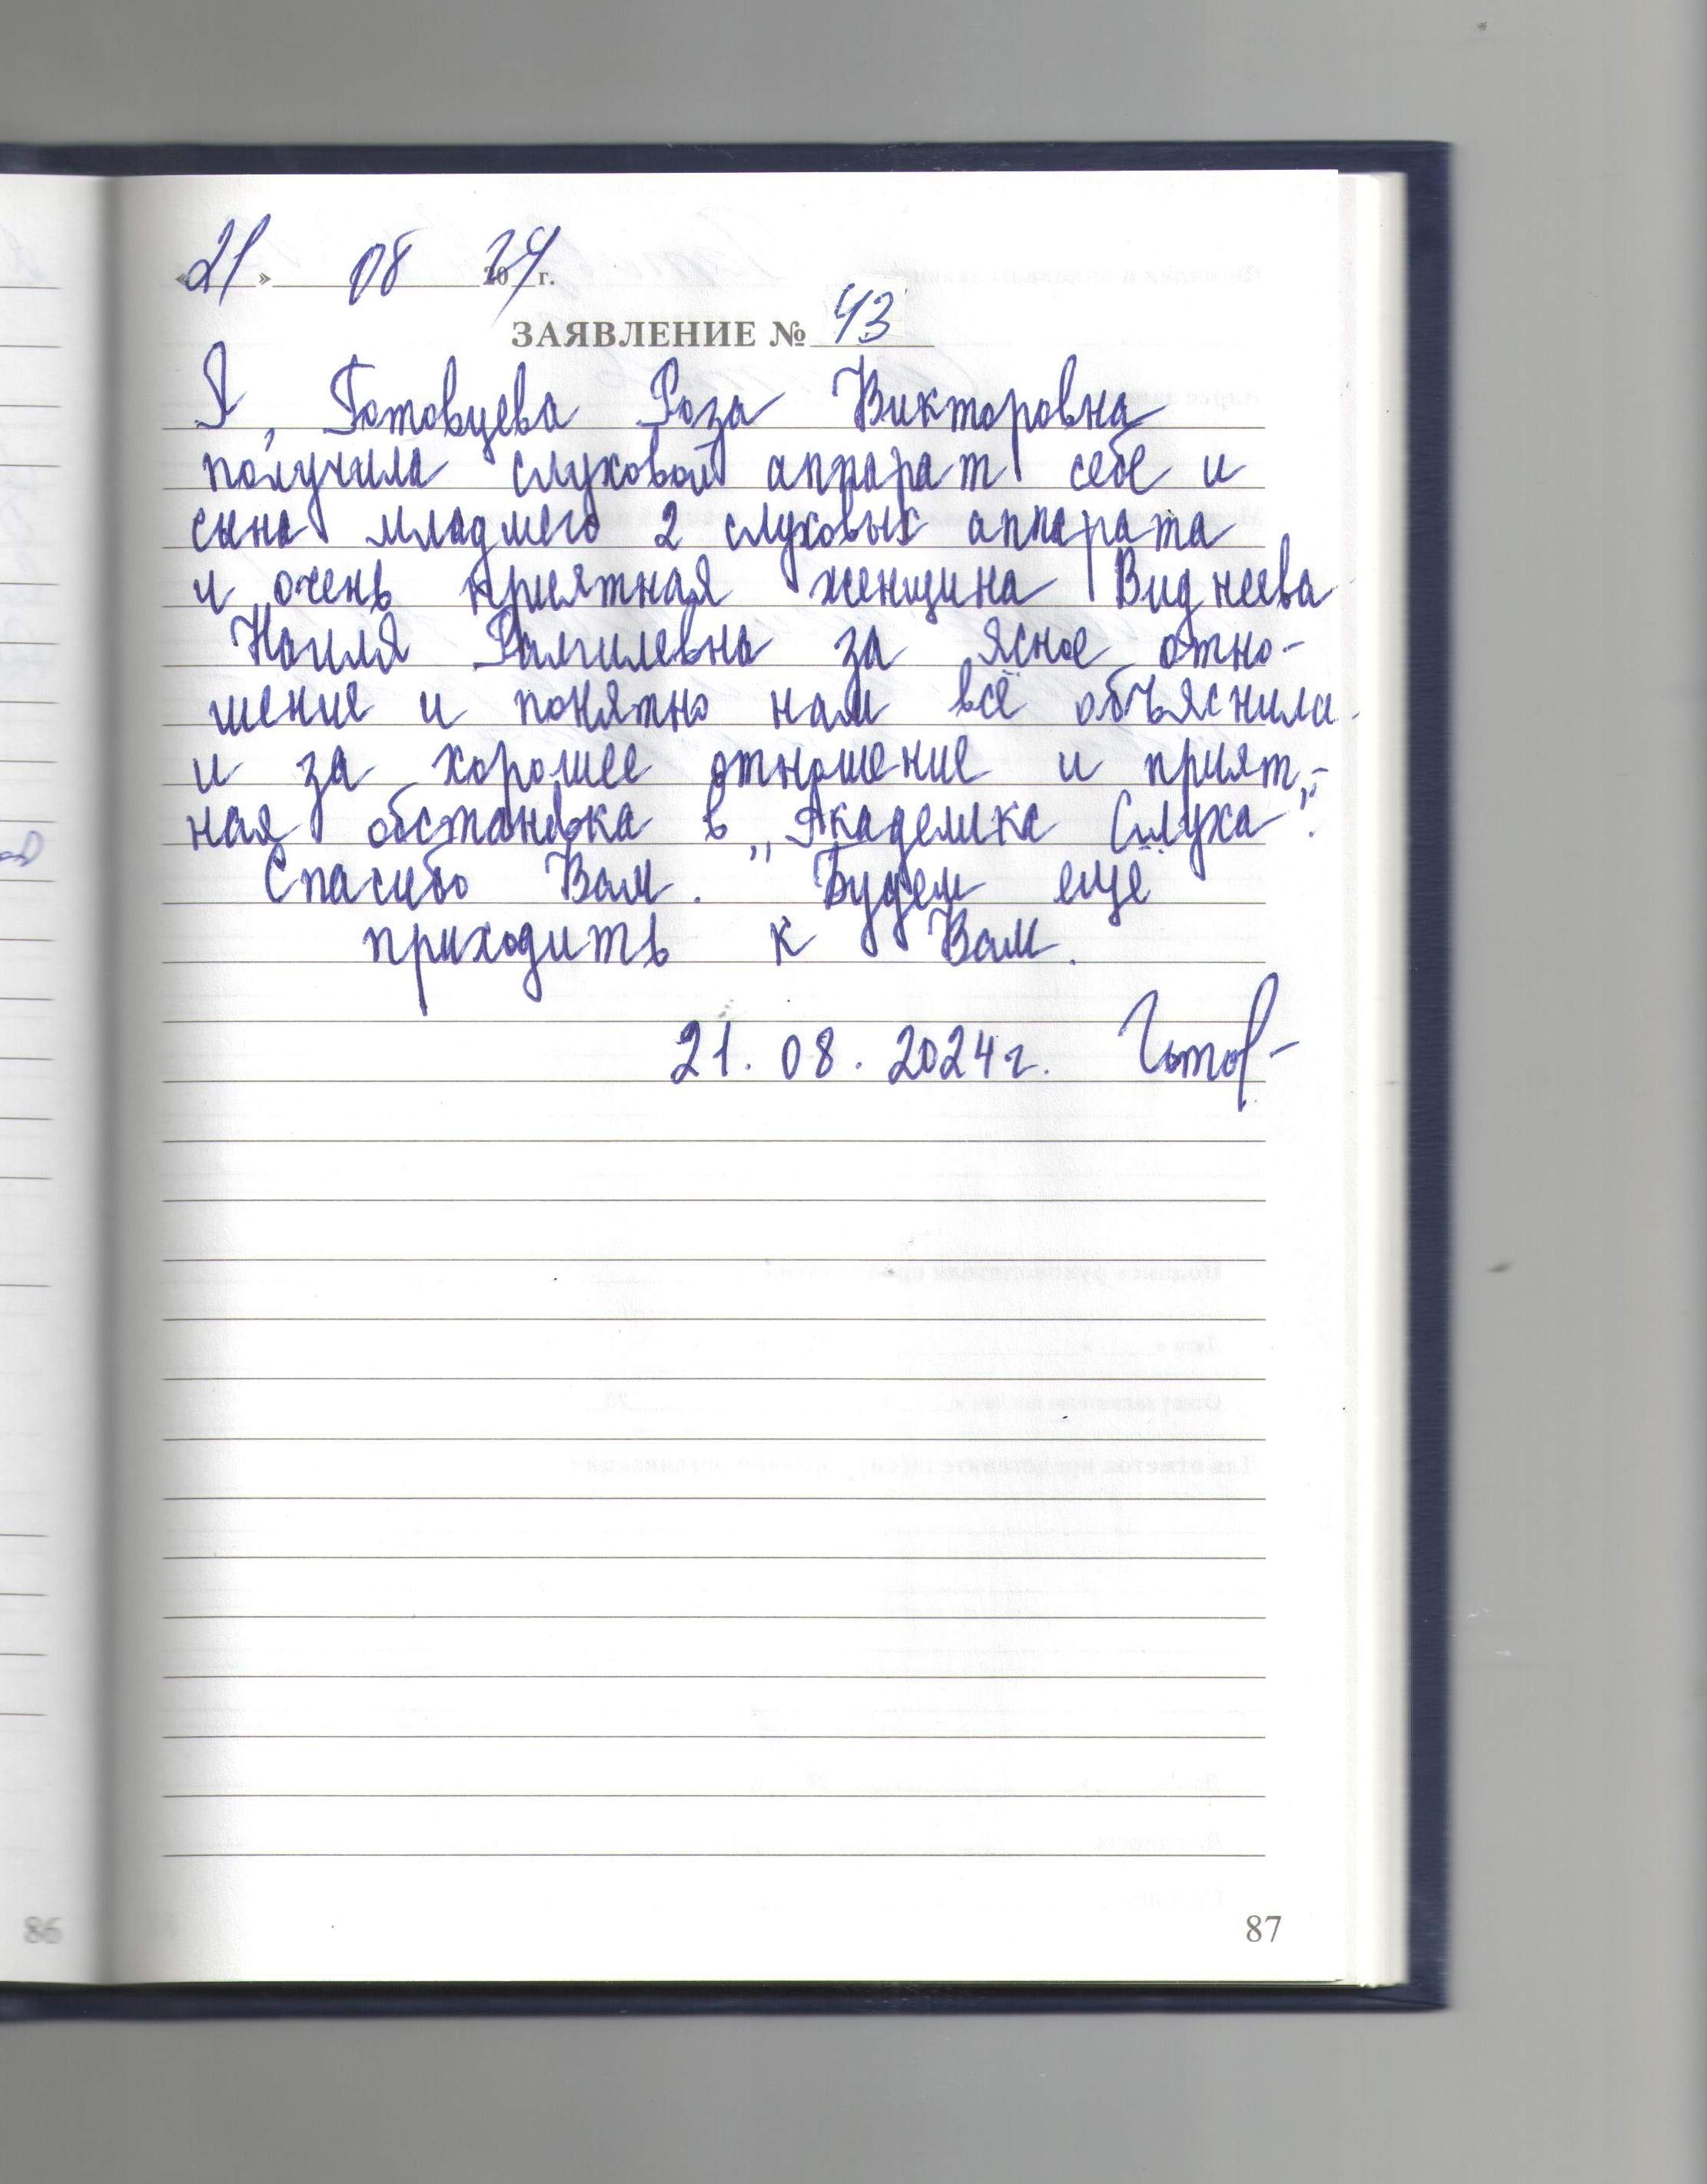 «21» 08 2024 г.
ЗАЯВЛЕНИЕ № 43
Я, Готовцева Роза Викторовна
получила слуховой аппарат себе и
сына младшего 2 слуховых аппарата
и очень приятная женщина Виднеева
Наиля Рамилевна за ясное отно-
шение и понятно нам всё объяснила
и за хорошее отношение и прият-
ная обстановка в „Академика Слуха".
Спасибо Вам. Будем ещё
приходить к Вам.
21.08.2024г. Готов-
86
87